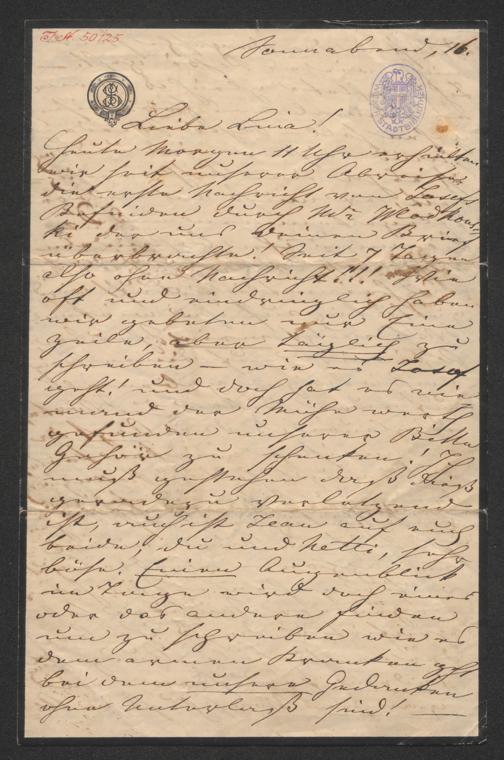 I. N. 50125
Sonnabend, 16.
Liebe Lina!
Heute Morgen 11 Uhr erhielten
wir seit unserer Abreise
die erste Nachricht von Josefs
Befinden durch Mr
der uns Deinen Brief
überbrachte! Seit 7 Tagen
also ohne Nachricht!!! Wie
oft und eindringlich haben
wir gebeten nur Eine
Zeile, aber täglich zu
schreiben – wie es Josef
geht! und doch hat es nie
mand der Mühe werth
gefunden unserer Bitte
Gehör zu schenken! Ich
muß gestehen daß dieß
geradezu verletzend
ist, auch ist Jean auf euch
beide, du und Netti, sehr
böse. Einen Augenblick
im Tage wird doch eines
oder das andere finden
um zu schreiben wie es
dem armen Kranken geht
bei dem unsere Gedanken
ohne Unterlaß sind! —